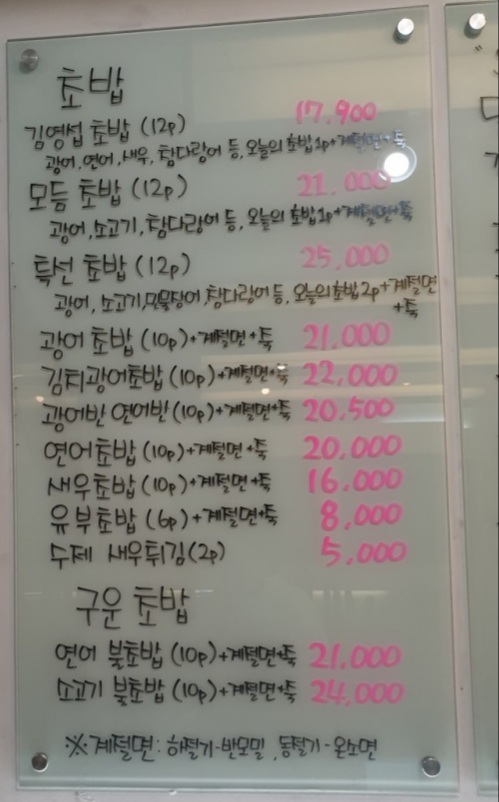 초밥
김영섭 초밥 (12p) 17,900
광어, 연어, 새우, 참다랑어 등, 오늘의 초밥 1p+계절면+죽
모듬 초밥 (12p) 21,000
광어, 소고기, 참다랑어 등, 오늘의 초밥 1p+계절면+죽
특선 초밥 (12p) 25,000
광어, 소고기, 민물장어, 참다랑어 등, 오늘의 초밥 2p+계절면
+죽
광어 초밥 (10p)+계절면+죽 21,000
김치광어초밥 (10p)+계절면+죽 22,000
광어반 연어반 (10p)+계절면+죽 20,500
연어초밥 (10p)+계절면+죽 20,000
새우초밥 (10p)+계절면+죽 16,000
유부초밥 (6p)+계절면+죽 8,000
수제 새우튀김 (2p) 5,000
구운 초밥
연어 불초밥 (10p)+계절면+죽 21,000
소고기 불초밥 (10p)+계절면+죽 24,000
※계절면: 하절기-반모밀, 동절기-온소면